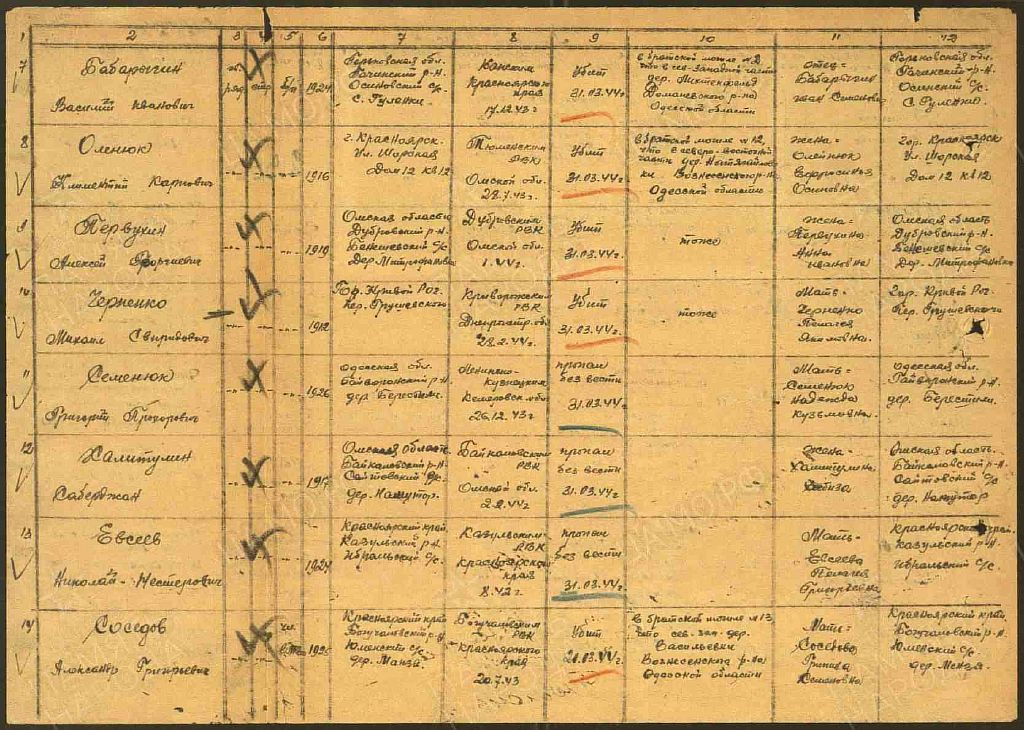 1 2 3 4 5 6 7 8 9 10 11 12
7
Бабарыгин
Василий Иванович
ряд
1924
Горьковская обл.
Осиновский с/с
с. Гуленки.
Канским
Красноярского
края
17.12.43г
Убит
31.03.44г
в братской могиле №2
дер.
Доманевского р-на
Одесской области
отец-
Бабарыгин
Иван Семенович
Горьковская обл.
с.
8
Оленюк
Климентий Карпович
1916
г. Красноярск.
Ул. Широкая
Дом 12 кв 12
Тюменским
РВК
Омской обл.
28.7.43г.
Убит
31.03.44г
в братской могиле №12,
что северо-восточной
части дер.
Вознесенского р-на
Одесской области
жена-
Олейнюк
Ефросинья
Осиповна
гор. Красноярск
Дом 12 кв 12
9
Первухин
Алексей Георгиевич
1919
Омская область
Дубровский р-н.
Бенешевский с/с
Дер. Митрофановка
Дубровским
РВК
Омской обл.
1.44г.
Убит
31.03.44г.
тоже
жена-
Первухина
Анна
Ивановна
Омская область
Дубровский р-н.
Бенешевский с/с
Дер. Митрофановка
10
Черненко
Михаил Свиридович
1912
Кривой Рог.
пер. Грушевского
Криворожским
РВК
Днепропетр. обл
28.2.44г.
Убит
31.03.44г.
тоже
Мать-
Черненко
Пелагея
Якимовна.
Гор. Кривой Рог.
пер. Грушевского
11
Семенюк
Григорий Прохорович
1926
Одесская обл.
Гайворонский р-н.
дер. Берестяги.
Ленинско-
Кузнецким
Кемеровск. обл
26.12.43г
пропал
без вести
31.03.44г
Мать-
Семенюк
Надежда
Кузьмовна.
Одесская обл.
Гайворонский р-н.
дер. Берестяги.
12
Халитулин
Саберджан
Омская область.
Байкаловский р-н.
Саитовский с/с
дер.
Байкаловским
РВК
Омской обл.
2.2.44г
пропал
без вести
31.03.44г
жена-
Халитулина
Омская область.
Байкаловский р-н.
Саитовский с/с
дер.
13
Евсеев
Николай Нестерович
1924
Красноярский край.
Казульский р-н.
с/с.
Казульским
РВК
Красноярского
края
8.42г
пропал
без вести
31.03.44г
Мать-
Евсеева
Пелагея
Григорьевна
Красноярский край.
Казульский р-н.
с/с.
14
Соседов
Александр Григорьевич
Красноярский край
Богучановский р-н
с/с
дер. Манзя.
Богучанским
РВК
Красноярского
края
20.7.43
Убит
21.03.44г.
в братской могиле №13,
что сев. зап. дер.
Васильевки
Вознесенского р-на
Одесской области
Мать-
Соседова
Семеновна
Красноярский край,
Богучановский р-н
с/с
дер. Манзя.